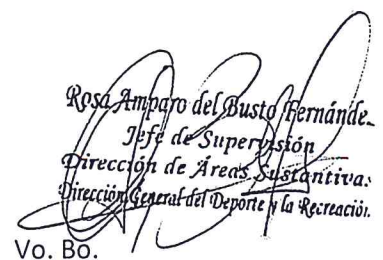 Rosa Amparo del Busto Fernánde
Jefe de Supervisión
Dirección de Áreas Sustantivas
Dirección General del Deporte y la Recreación
Vo. Bo.